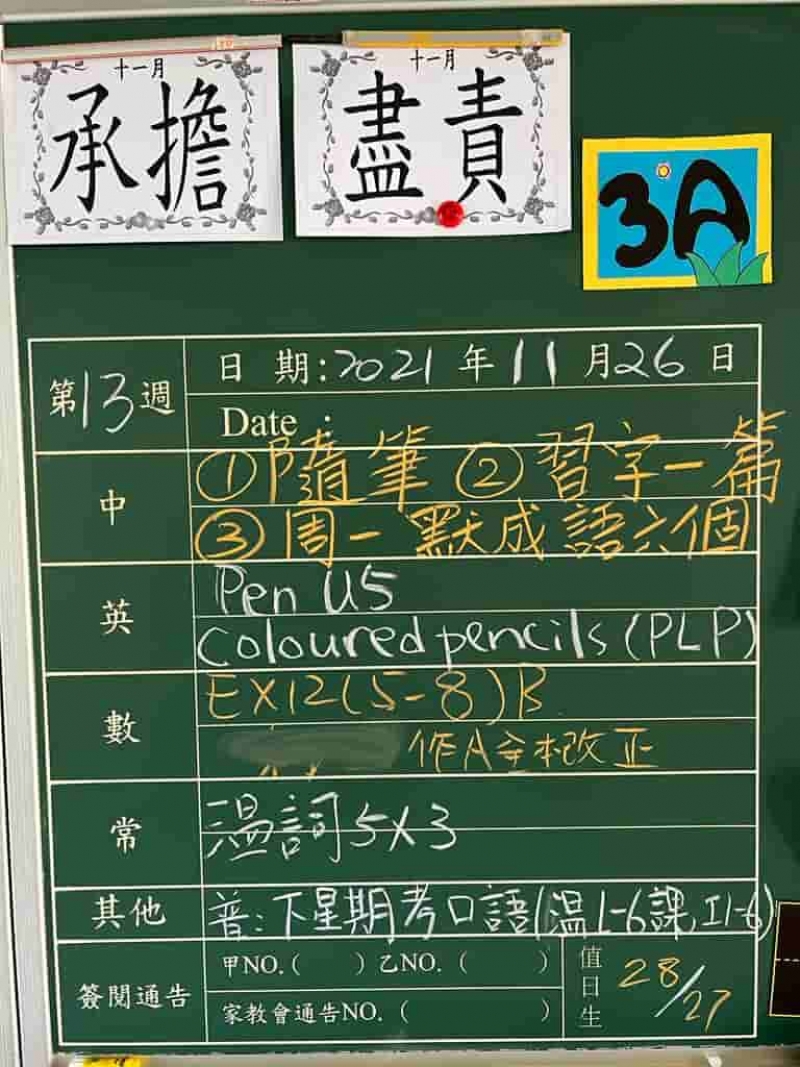 十一月
承擔
十一月
盡責
3A
第13週
日 期:2021 年 11 月 26 日
Date :
中
①隨筆 ②習字一篇
③周一 默成語六個
英
Pen U5
Coloured pencils (PLP)
數
EX12(5-8)B
作A全本改正
常
溫詞5X3
其他
普:下星期考口語(溫1-6課
簽閱通告
甲NO.( ) 乙NO. ( )
家教會通告NO. ( )
值日生
28/27